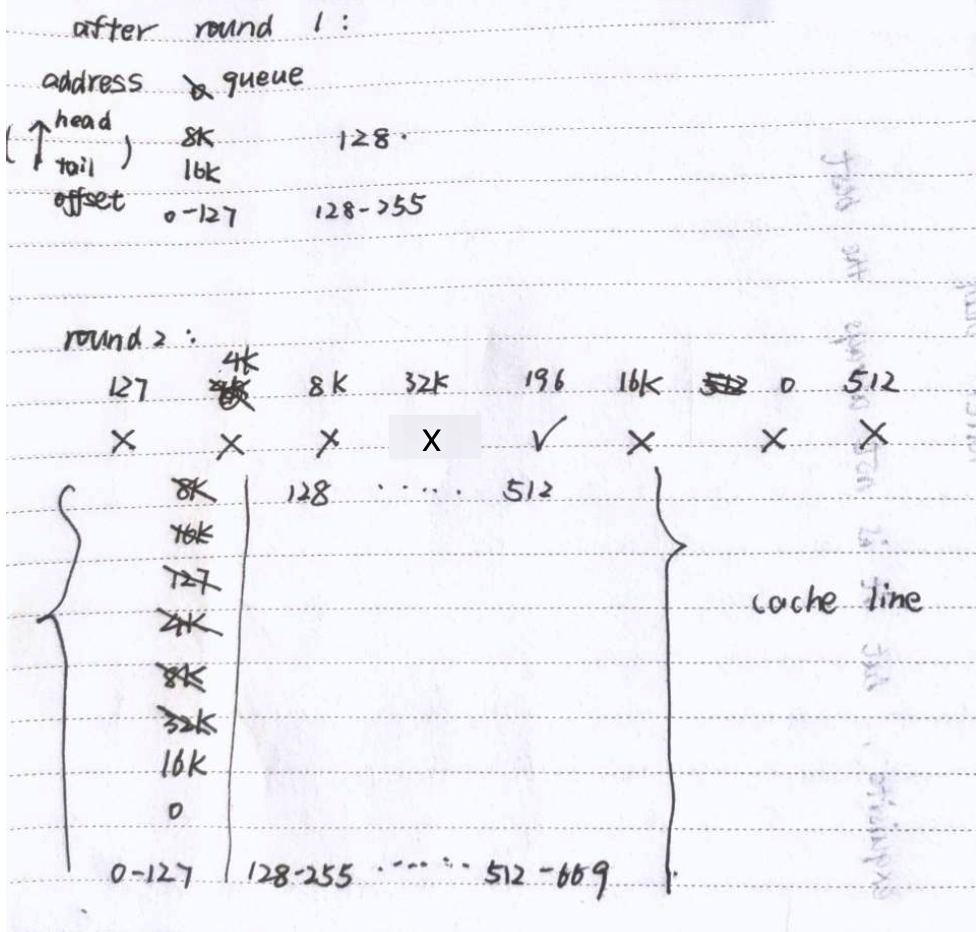 after round 1:
address queue
head 8K 128.
( ↑ tail ) 16K
offset 0-127 128-255
round 2:
4K
127 8K 32K 196 16K 512 0 512
X X X X ✓ X X X
8K 128 ...... 512
16K
127
4K
cache line
8K
32K
16K
0
0-127 128-255 ...... 512-669